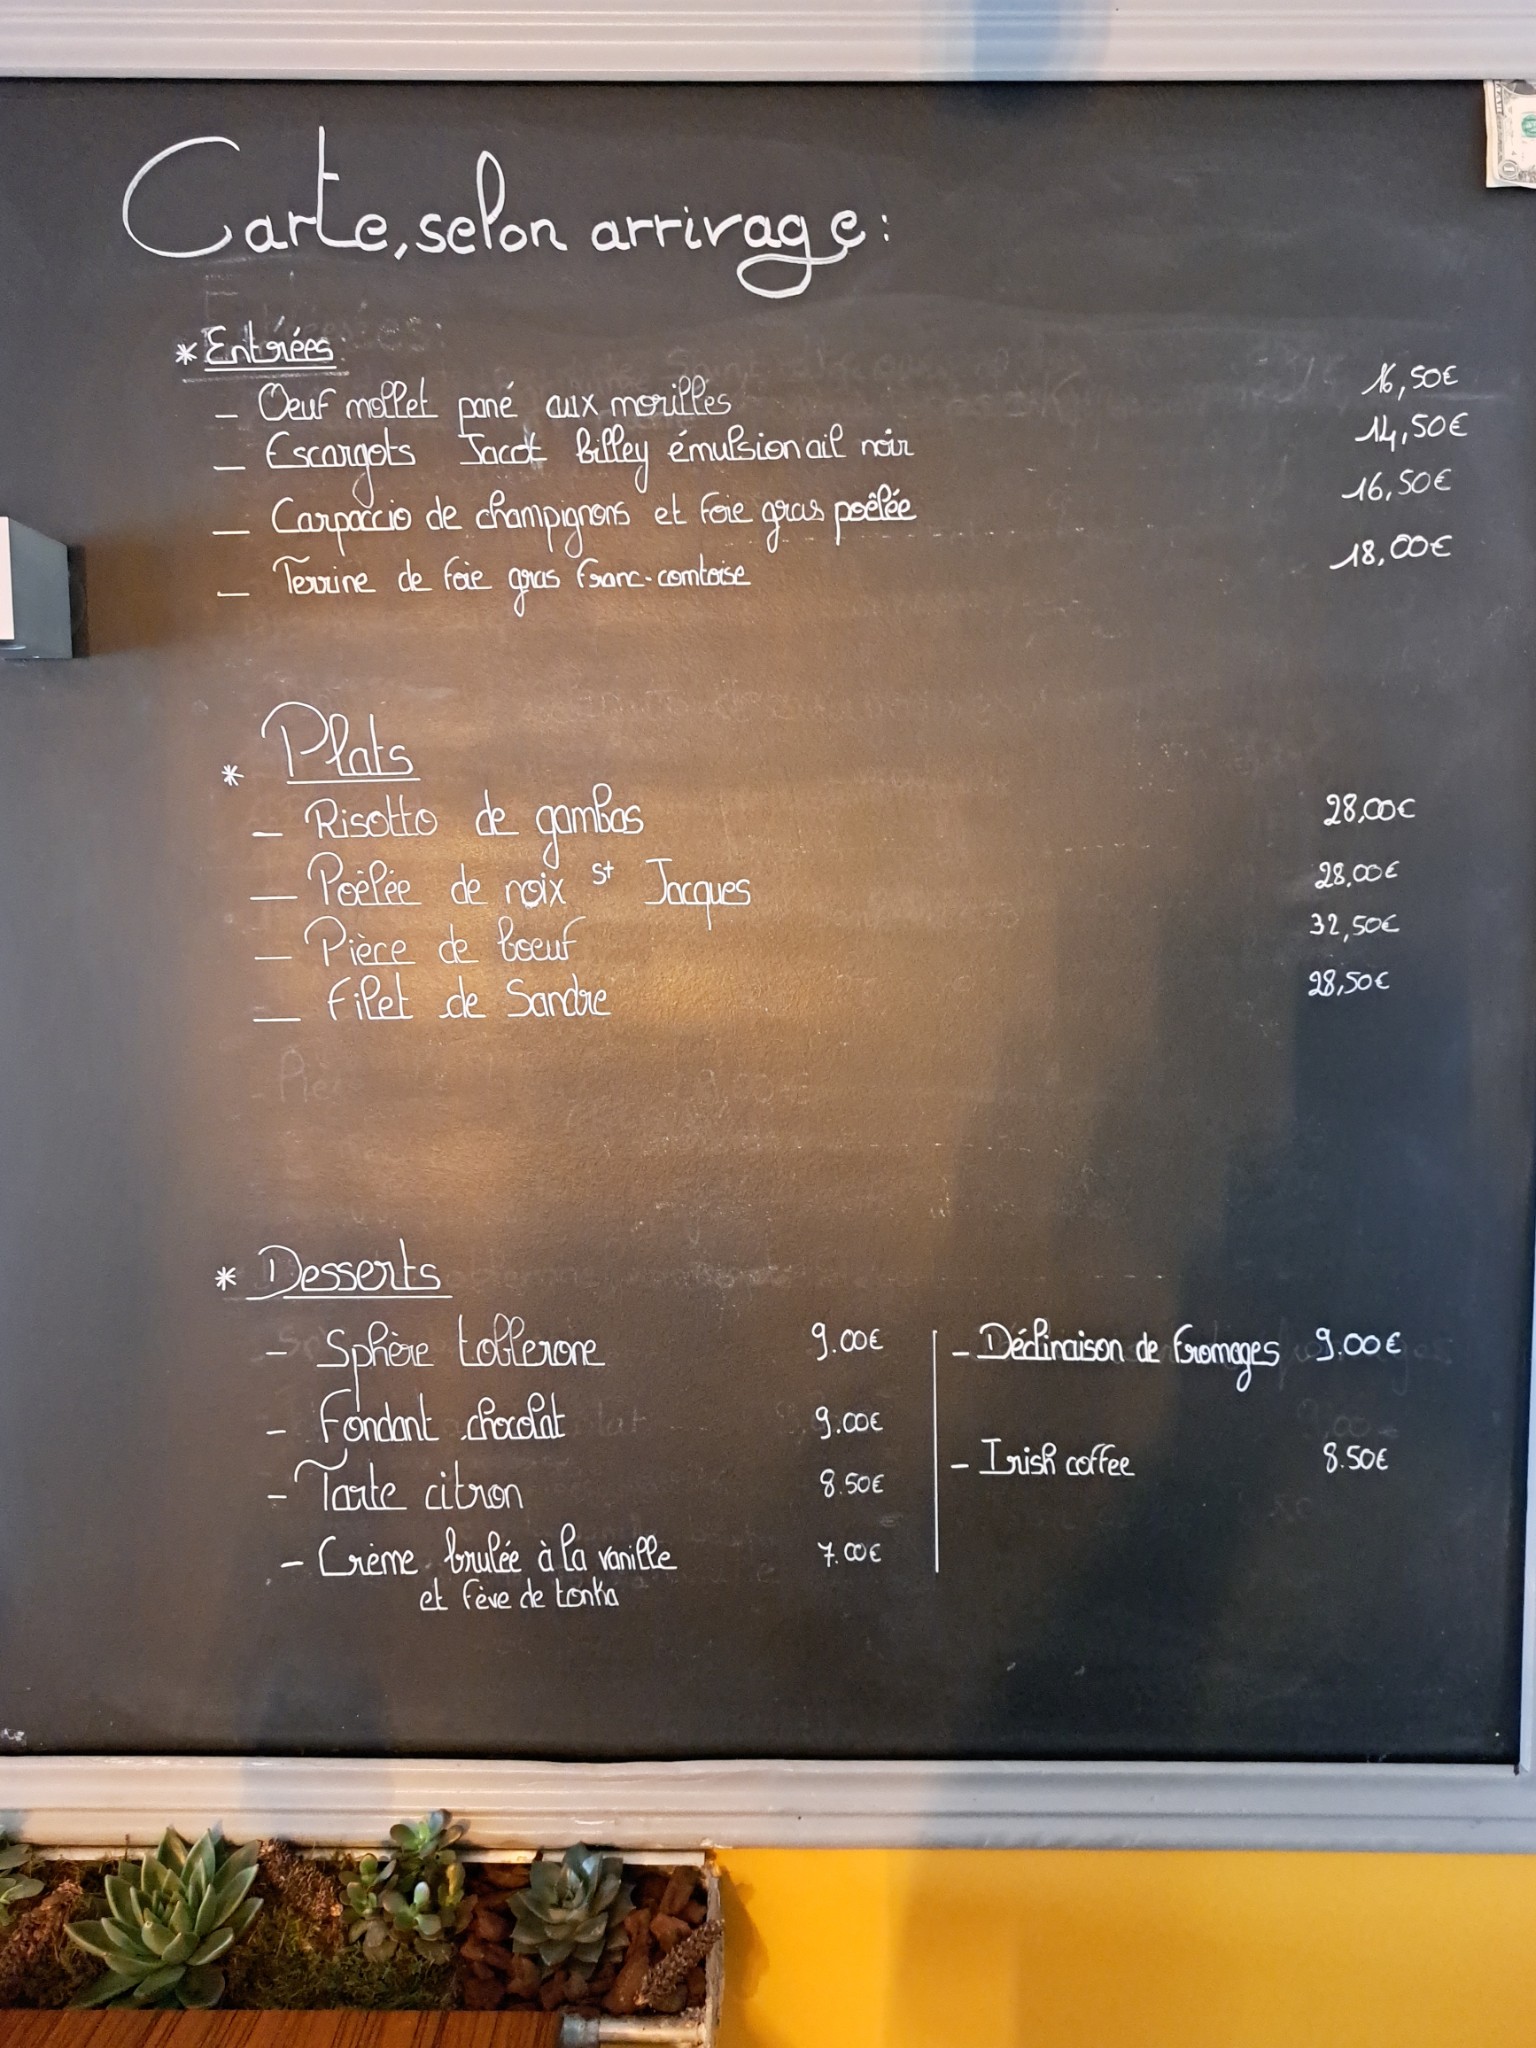 Carte, selon arrivage :
* Entrées :
- Oeuf mollet pané aux morilles 16,50€
- Escargots Jacot Billey émulsion ail noir 14,50€
- Carpaccio de champignons et foie gras poêlée 16,50€
- Terrine de foie gras franc-comtoise 18,00€
* Plats
- Risotto de gambas 28,00€
- Poêlée de noix St Jacques 28,00€
- Pièce de boeuf 32,50€
- Filet de Sandre 28,50€
* Desserts
- Sphère toblerone 9.00€
- Fondant chocolat 9.00€
- Tarte citron 8.50€
- Crème brulée à la vanille 7.00€
et fève de tonka
- Déclinaison de fromages 9.00€
- Irish coffee 8.50€